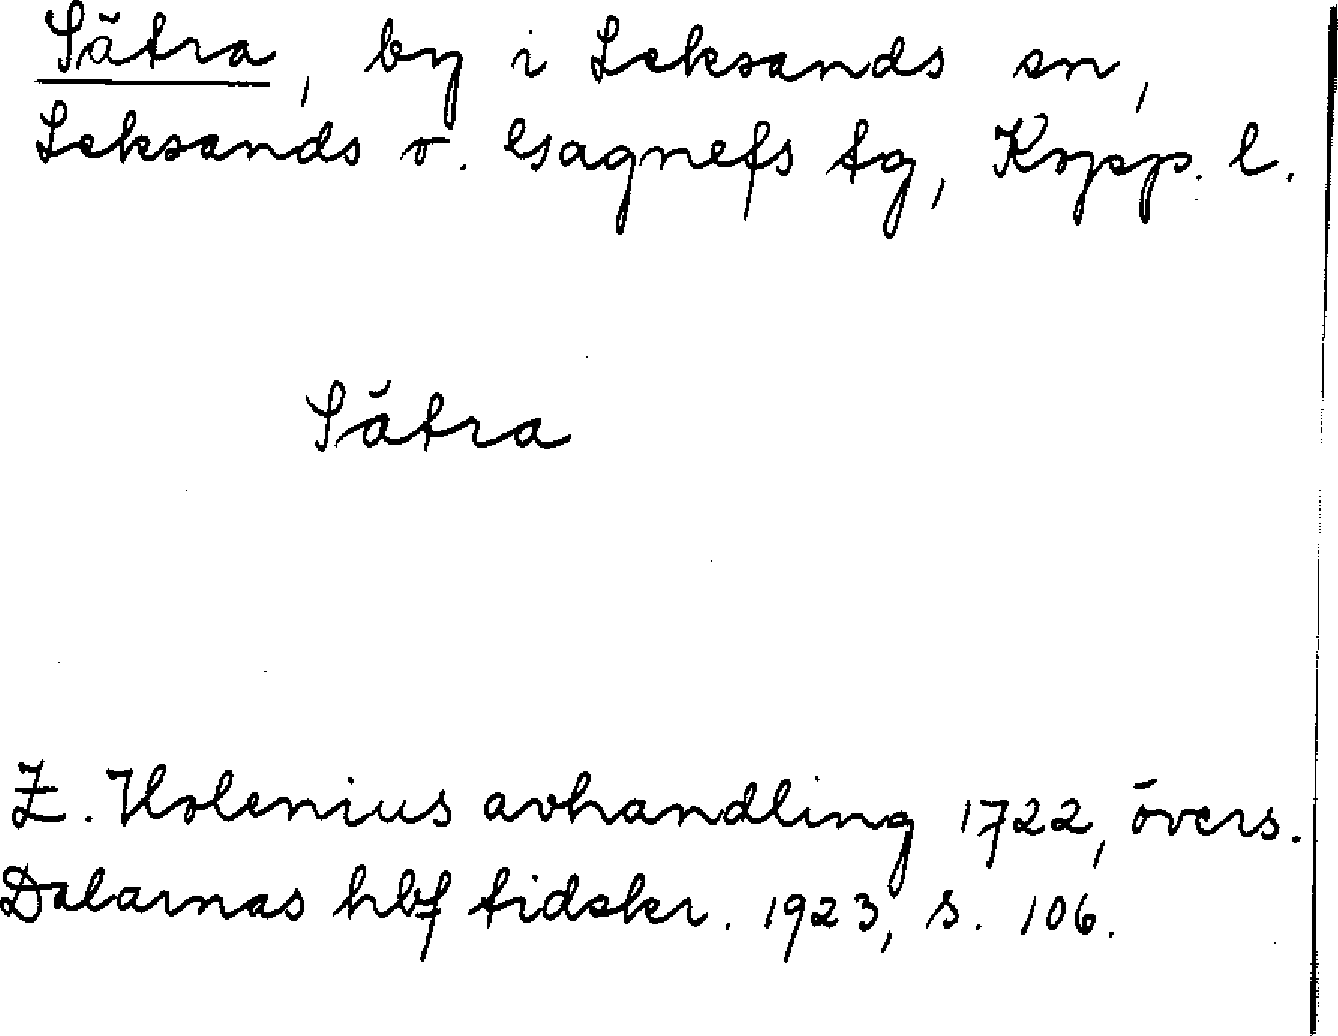 Sätra, by i Leksands sn,
Leksands o. Gagnefs tg, Kopp. l.
Sätra
Z. Holenius avhandling 1722, övers.
Dalarnas hbf tidskr. 1923, s. 106.